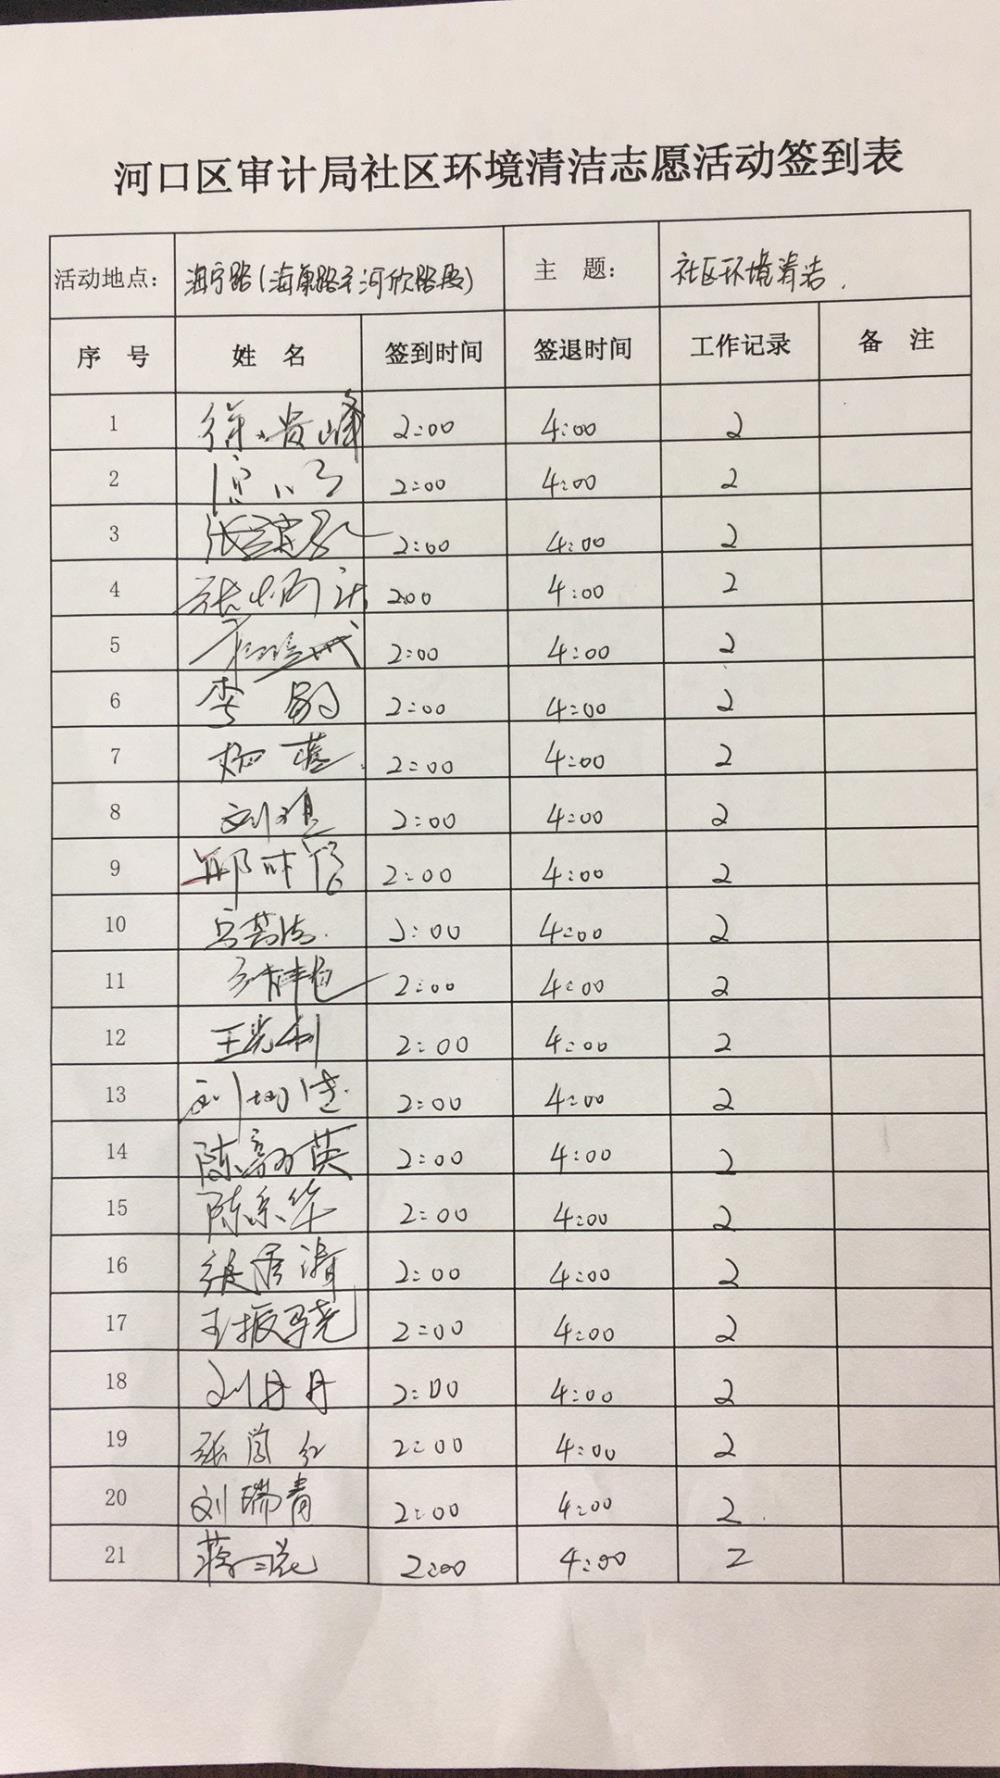 河口区审计局社区环境清洁志愿活动签到表
活动地点： 海宁路(海康路至河欣路段) 主 题： 社区环境清洁.
序 号 姓 名 签到时间 签退时间 工作记录 备 注
1 徐贵峰 2:00 4:00 2
2 2:00 4:00 2
3 2:00 4:00 2
4 张 200 4:00 2
5 2:00 4:00 2
6 李 2:00 4:00 2
7 2:00 4:00 2
8 刘 2:00 4:00 2
9 2:00 4:00 2
10 2:00 4:00 2
11 2:00 4:00 2
12 王光利 2:00 4:00 2
13 刘 2:00 4:00 2
14 陈 英 2:00 4:00 2
15 陈京华 2:00 4:00 2
16 张 清 2:00 4:00 2
17 王振骁 2:00 4:00 2
18 刘丹丹 2:00 4:00 2
19 张 红 2:00 4:00 2
20 刘瑞青 2:00 4:00 2
21 蒋 2:00 4:00 2